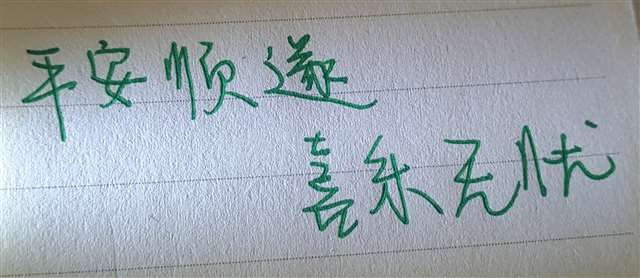 平安顺遂
喜乐无忧